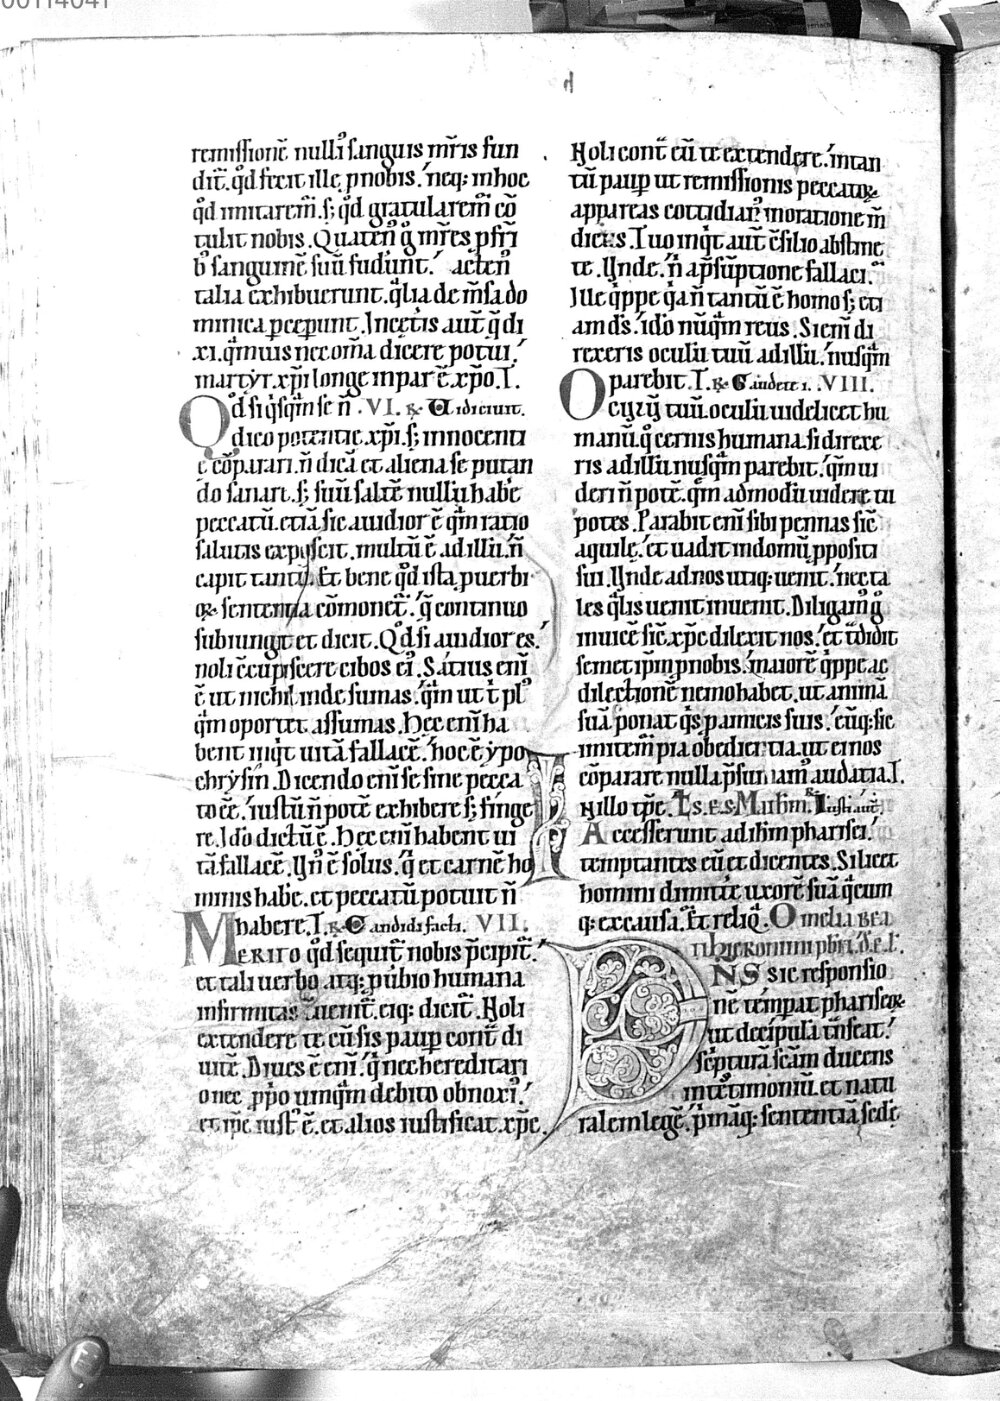 00114041
h
remissionē nulli᷒ sanguis mr̄is fun
dit̄. qd̄ fecit ille pnobis. neq; inhoc
qd̄ imitarem̄. s; qd̄ gratularem̄ cō
tulit nobis. Quaten̄ g̊ mr̄es pfr̄i
b᷒ sanguinē suū fudunt. acten̄
talia exhibuerunt. q̄lia de m̄sa do
minica pceꝑunt. Incet̄is aut̄ q̄ di
xi. q̄muis nec om̄a dicere potui.
martyr. xp̄i longe impar ē xp̄o. T.
Qd̄ si qͥsqͣm se n̄ . VI. ꝶ Vidierunt.
dico potentie. xp̄i. s; innocenti
ę cōparari. n̄ dicā et aliena se putan
do sanari. s; suū saltē nullū habe
peccatū. etiā sic auidior ē qͣm ratio
salutis exposcit. multū ē ad illū. n̄
capit tantū. Et bene qd̄ ista puerbi
oꝝ sententia cōmonet̄. q̄ continuo
subiungit et dicit. Qd̄ si auidior es.
noli c̄cupiscere cibos ei᷒. Satius eni̅
ē ut nichil inde sumas. qͣm ut t̄ pl᷒
qͣm oportet assumas. Hec eni̅ ha
bent inqͥt uitā fallacē. hoc ē ypo
chrysin. Dicendo eni̅ se sine pecca
to c̄c̄. iustū n̄ potē exhibere s; finge
re. Ido dictū ē. Hec eni̅ habent ui
tā fallacē. Vn̄ ē solus. qͥ et carnē ho
minis habe. et peccatū potuit n̄
habere. T. ꝶ Candidi facti. VII.
MERITO qd̄ sequit̄ nobis p̄cipit̄.
et tali uerbo atq; pūbio humana
infirmitas cuenit̄. eiq; dicit̄. Noli
extendere te cū sis paup cont̄ di
uitē. Diues ē eni̅. qͥ nec hereditari
o nec ppo umqͣm debito obnoxi᷒.
et ip̄e iust᷒ ē. et alios iustificat. xp̄c.
Noli cont̄ eū te extendere. in tan
tū paup ut remissionis peccatoꝝ
appareas cottidian᷒ in oratione m̄
dicus. Tuo inqͥt aut̄ c̄silio abstine
te. Vnde. n̄ a psūptione fallaci.
Ille q̄ppe qͥa n̄ tantū ē homo s; eti
am d̄s. ido nūqͣm reus. Si eni̅ di
rexeris oculū tuū ad illū. nusqͣm
parebit. T. ꝶ Gaudete i. VIII.
OCULŪ tuū. oculū uidelicet hu
manū. qͦ cernis humana. si direxe
ris ad illū nusqͣm parebit. qͣm ui
deri n̄ potē. qͣm admodū uidere tu
potes. Parabit eni̅ sibi pennas sic̄
aquilę. et uadit in domū ppositi
sui. Vnde ad nos utiq; uenit. nec ta
les q̄lis uenit inuenit. Diligam᷒ g̊
inuicē sic̄. xp̄c dilexit nos. et t̄didit
semet ip̄m pnobis. maiorē q̄ppe ac
dilectionē nemo habet. ut animā
suā ponat qͥs p amicis suis. eūq; sic
imitem̄ pia obedientia. ut ei nos
cōparare nulla p̄sumam᷒ audatia. T.
IN illo tp̄e. Accesserunt ad ih̄m pharisei.
temptantes eū et dicentes. Si licet
homini dimittē uxorē suā qͣcum
q; ex causa. Et reliq̄. Omelia bea
ti hieronimi pbr̄i. d. e. l.
DNS sic responsio
nē tēmpat phariseoꝝ
ut decipulā t̄nseat.
sc̄pturā sc̄am ducens
in testimoniū. et natu
ralem legē. pͥmāq; sententiā sedę